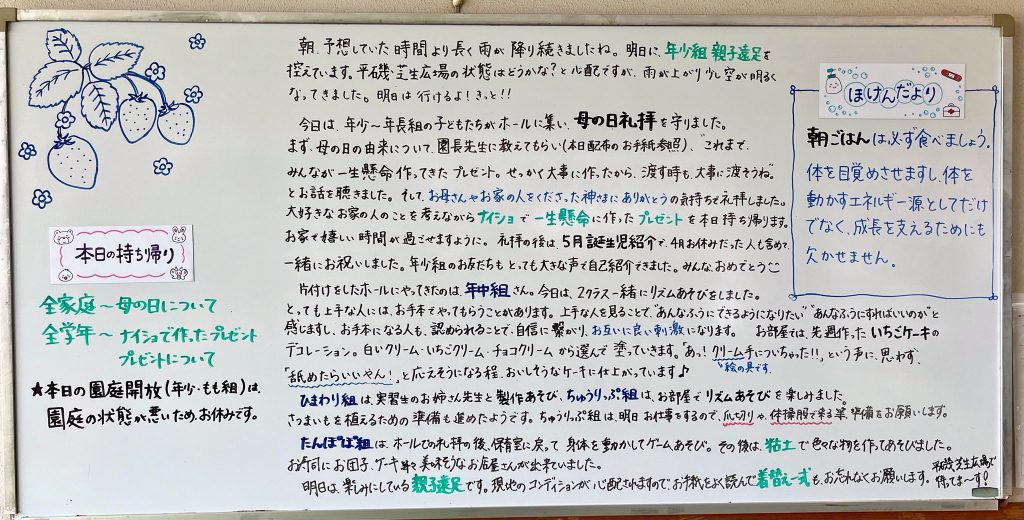 朝、予想していた時間より長く雨が降り続きましたね。明日に、年少組親子遠足を
控えています。平磯芝生広場の状態はどうかな?と心配ですが、雨が上がり少し空が明るく
なってきました。明日は行けるよ!きっと!!
今日は、年少〜年長組の子どもたちがホールに集い、母の日礼拝を守りました。
まず、母の日の由来について、園長先生に教えてもらい(本日配布のお手紙参照)、これまで、
みんなが一生懸命作ってきたプレゼント。せっかく大事に作ったから、渡す時も、大事に渡そうね。
とお話を聴きました。そして、お母さんやお家の人をくださった神さまにありがとうの気持ちで礼拝しました。
大好きなお家の人のことを考えながらナイショで一生懸命に作ったプレゼントを本日持ち帰ります。
お家で嬉しい時間が過ごせますように。礼拝の後は、5月誕生児紹介で、4月お休みだった人も含めて、
一緒にお祝いしました。年少組のお友だちもとっても大きな声で自己紹介できました。みんな、おめでとう
片付けをしたホールにやってきたのは、年中組さん。今日は、2クラス一緒にリズムあそびをしました。
とっても上手な人には、お手本でやってもらうことがあります。上手な人を見ることで、"あんなふうにできるようになりたい""あんなふうにすればいいのか"と
感じますし、お手本になる人も、認められることで、自信に繋がり、お互いに良い刺激になります。 お部屋では、先週作ったいちごケーキの
デコレーション。白いクリーム・いちごクリーム・チョコクリームから選んで塗っていきます。「あっ!クリーム手についちゃった!!」という声に、思わず、
絵の具です。
「舐めたらいいやん!」と応えそうになる程、おいしそうなケーキに仕上がっています♪
ひまわり組は、実習生のお姉さん先生と製作あそび、ちゅうりっぷ組は、お部屋でリズムあそびを楽しみました。
さつまいもを植えるための準備も進めたようです。ちゅうりっぷ組は、明日お仕事をするので、爪切りや、体操服で来る等準備をお願いします。
たんぽぽ組は、ホールでの礼拝の後、保育室に戻って身体を動かしてゲームあそび。その後は、粘土で色々な物を作ってあそびました。
お寿司にお団子、ケーキ等々美味そうなお店屋さんが出来ていました。
明日は、楽しみにしている親子遠足です。現地のコンディションが心配されますので、お手紙をよく読んで着替え一式も、お忘れなくお願いします。
平磯芝生広場で
待ってま〜す!
本日の持ち帰り
全家庭〜母の日について
全学年〜ナイショで作ったプレゼント
プレゼントについて
★本日の園庭開放(年少・もも組)は、
園庭の状態が悪いため、お休みです。
ほけんだより
朝ごはんは必ず食べましょう。
体を目覚めさせますし、体を
動かすエネルギー源としてだけ
でなく、成長を支えるためにも
欠かせません。